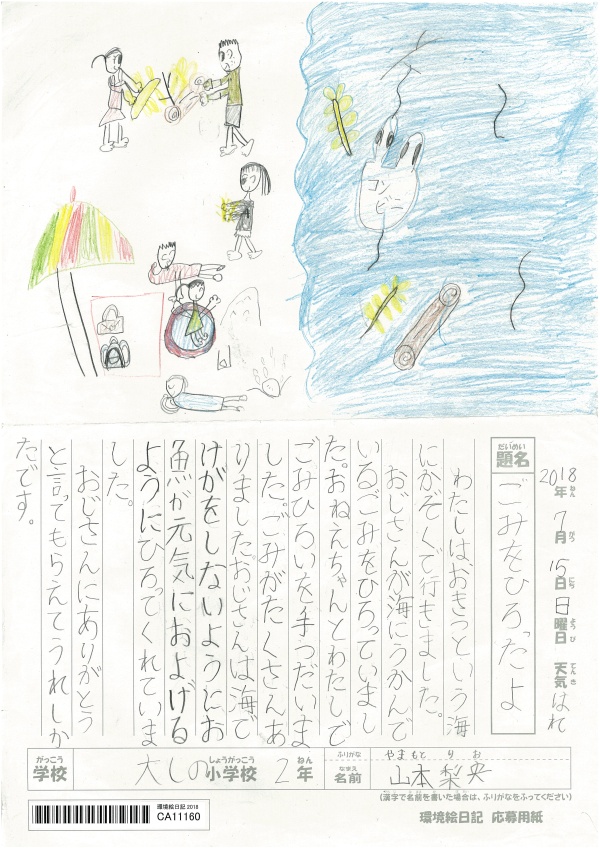 コン
ビニ
2018年ねん 7月がつ 15日にち 日曜日ようび 天気てんき はれ
題名だいめい
ごみをひろったよ
わたしは、おきつという海
にかぞくで行きました。
おじさんが海にうかんで
いるごみをひろっていまし
た。おねえちゃんとわたしで
ごみひろいを手つだいま
した。ごみがたくさんあ
りました。おじさんは海で
けがをしないようにお
魚が元気におよげる
ようにひろってくれていま
した。
おじさんにありがとう
と言ってもらえてうれしか
たです。
がっこう しょうがっこう ねん
学校 大しの小学校 2年
ふりがな やまもと りお
なまえ
名前 山本梨央
(漢字で名前を書いた場合は、ふりがなをふってください)
環境絵日記 2018
CA11160
環境絵日記 応募用紙